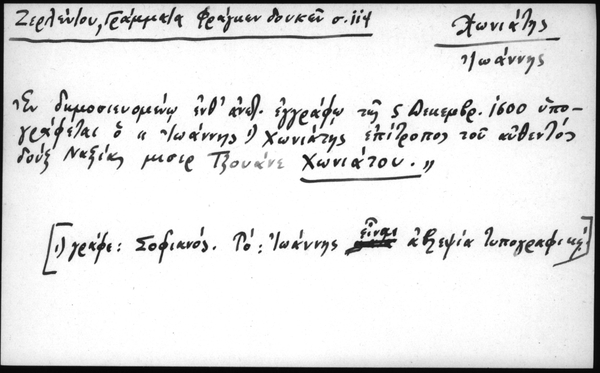 Ζερλέντου, Γράμματα Φράγκων δουκῶν σ. 114
Χωνιάτης
Ἰωάννης
Ἐν δημοσιευομένῳ ἐνθ' ἀνωτ. ἐγγράφῳ τῆς 5 Δεκεμβρ. 1600 ὑπο-
γράφεται ὁ « Ἰωάννης 1) Χωνιάτης ἐπίτροπος τοῦ αὐθεντός
δούξ Ναξίας μισὲρ Τζουάνε Χωνιάτου. »
[1) γράφε: Σοφιανός. Τό: Ἰωάννης εἶναι ἀβλεψία τυπογραφική]